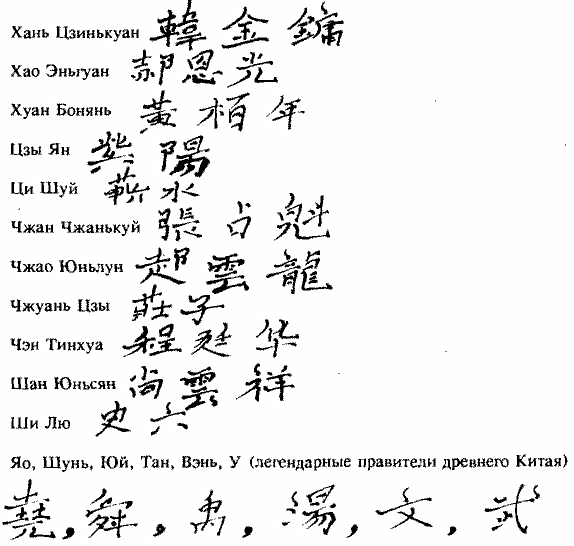 Хань Цзинькуан 韓金鏞
Хао Эньгуан 郝恩光
Хуан Бонянь 黃栢年
Цзы Ян 紫陽
Ци Шуй 蘄水
Чжан Чжанькуй 張占魁
Чжао Юньлун 趙雲龍
Чжуань Цзы 莊子
Чэн Тинхуа 程廷华
Шан Юньсян 尚雲祥
Ши Лю 史六
Яо, Шунь, Юй, Тан, Вэнь, У (легендарные правители древнего Китая)
堯, 舜, 禹, 湯, 文, 武